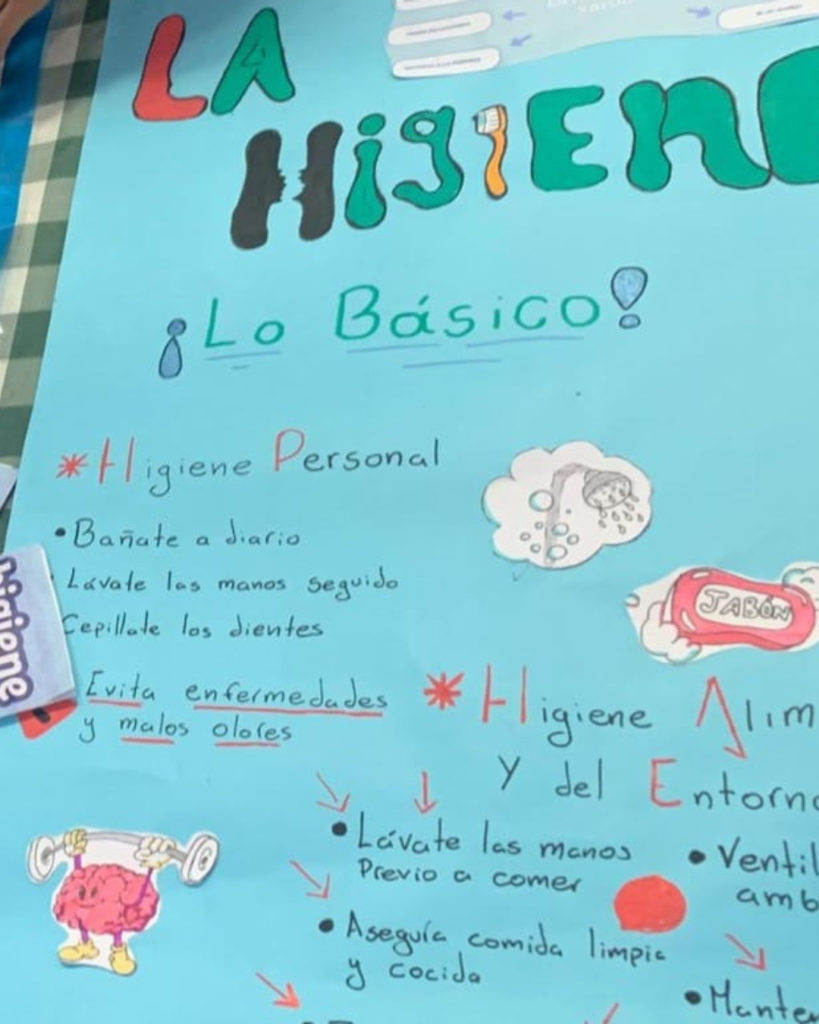 LA
HigIEn
¡Lo Básico!
* Higiene Personal
• Bañate a diario
• Lávate las manos seguido
Cepillate los dientes
Evita enfermedades
y malos olores
JABÓN
Higiene
* Higiene Alim
y del Entorno
• Lávate las manos
Previo a comer
• Aseguía comida limpia
y cocida
• Ventil
amb
• Manten